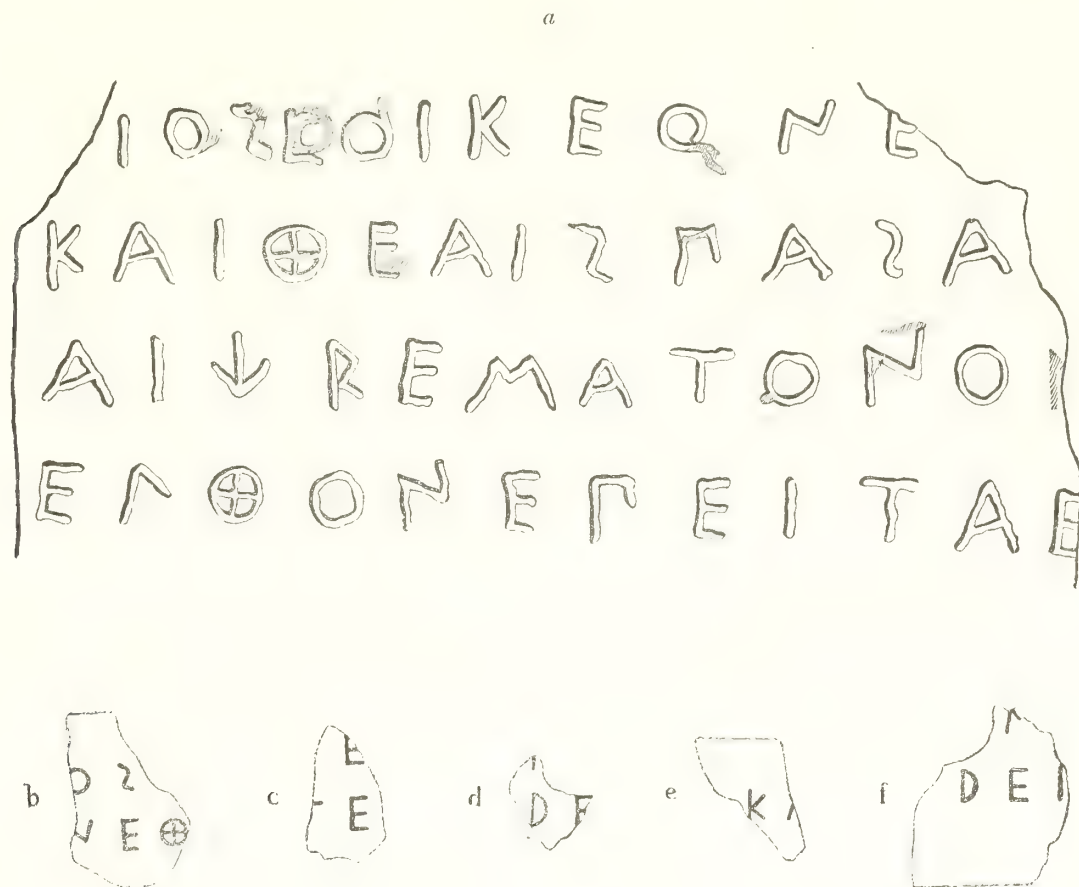 a
ΙΟΣΕΟΙΚΕΟΝΕ
ΚΑΙΘΕΑΙΣΠΑΣΑ
ΑΙΧΡΕΜΑΤΟΝΟ
ΕΛΘΟΝΕΠΕΙΤΑΕ
b
ΟΣ
ΝΕΘ
c
Ε
Ε
d
ΔΕ
e
Κ
f
ΔΕΙ